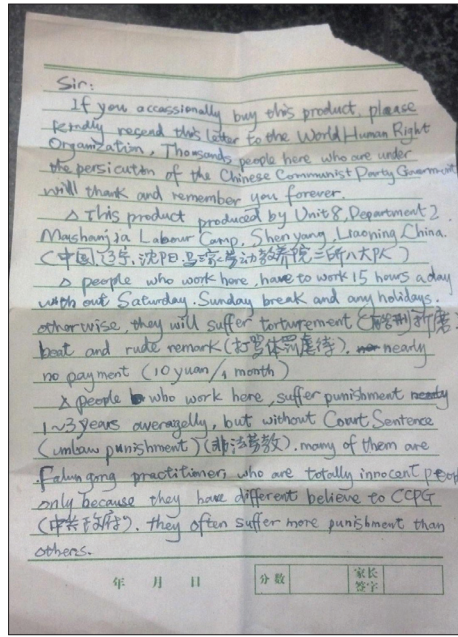 Sir:
If you occassionally buy this product, please
kindly resend this letter to the World Human Right
Organization. Thousands people here who are under
the persicution of the Chinese Communist Party Government
will thank and remember you forever.
△ This product produced by Unit 8, Department 2,
Masanjia Labour Camp, Shenyang, Liaoning, China.
(中国,辽宁,沈阳,马三家劳动教养院二所八大队)
△ people who work here, have to work 15 hours a day
with out Saturday, Sunday break and any holidays.
otherwise, they will suffer torturement (酷刑折磨)
beat and rude remark (打骂体罚虐待). nearly
no payment (10 yuan/1 month)
△ people who work here, suffer punishment
1~3 years averagelly, but without Court Sentence
(unlaw punishment) (非法劳教). many of them are
Falun gong practitioner, who are totally innocent people
only because they have different believe to CCPG
(中共政府). they often suffer more punishment than
others.
年 月 日 分数 家长签字